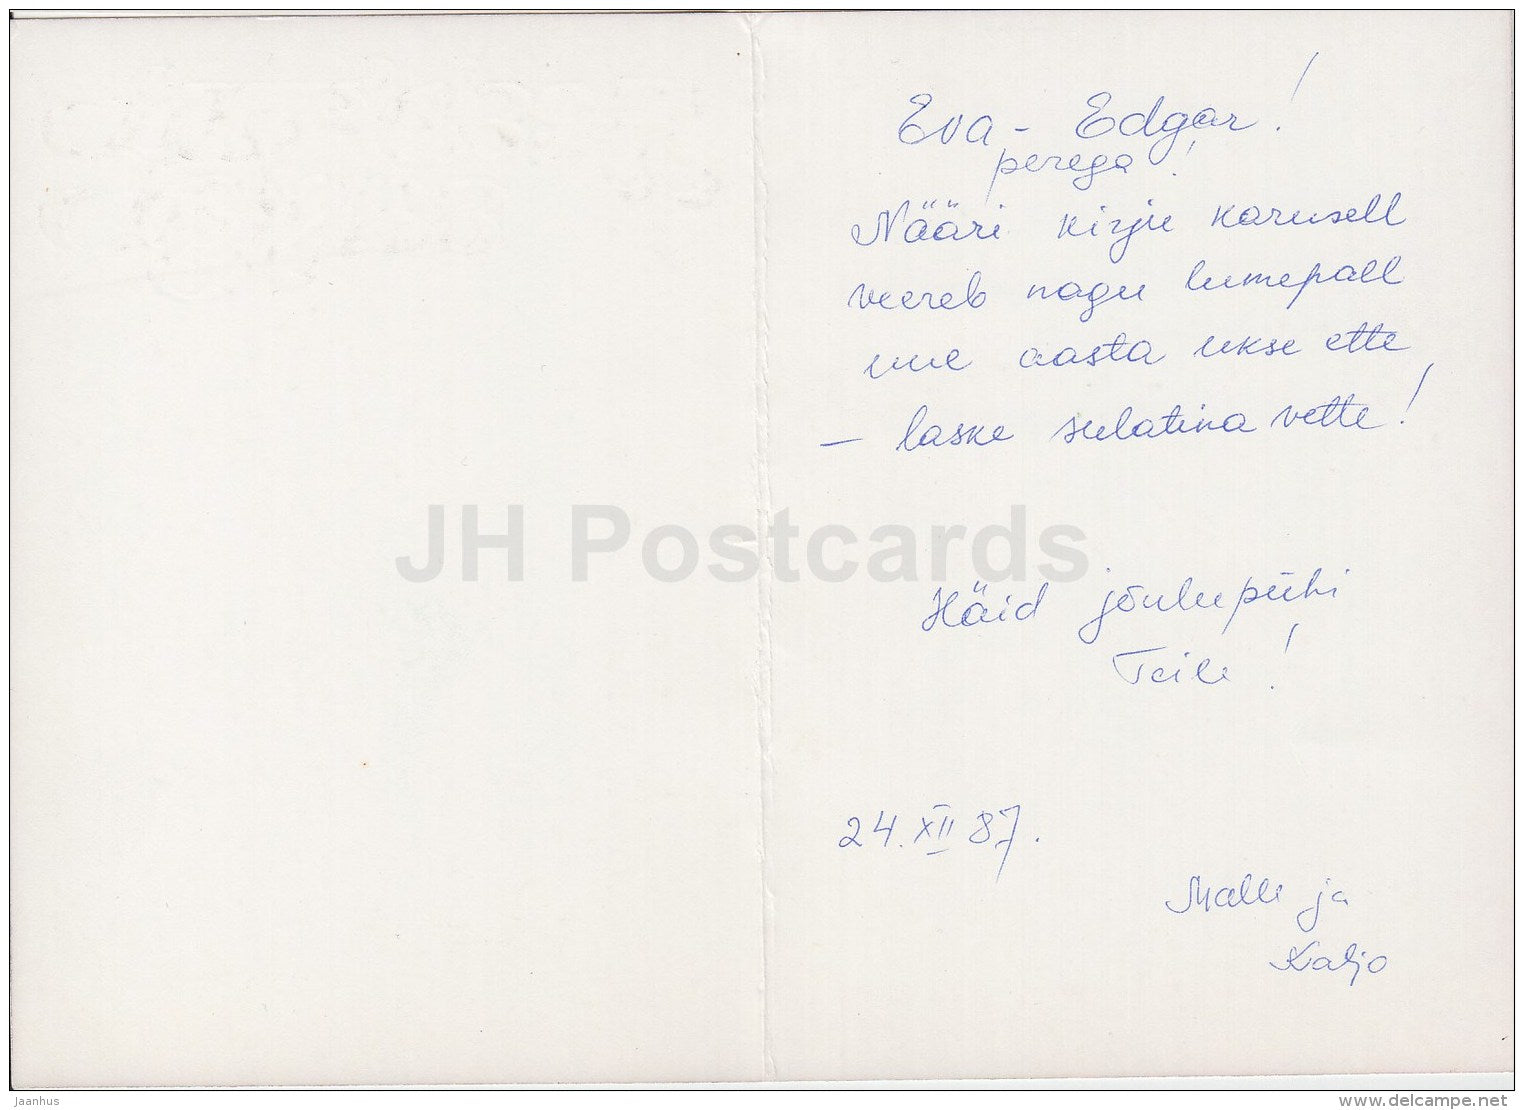 Eva - Edgar!
perega!
Nääri kirju karusell
veereb nagu lumepall
uue aasta ukse ette
– laske sulatina vette!
JH Postcards
Häid jõulupühi
Teile!
24. XII 87.
Malle ja
Kaljo
Jaanhus
www.delcampe.net